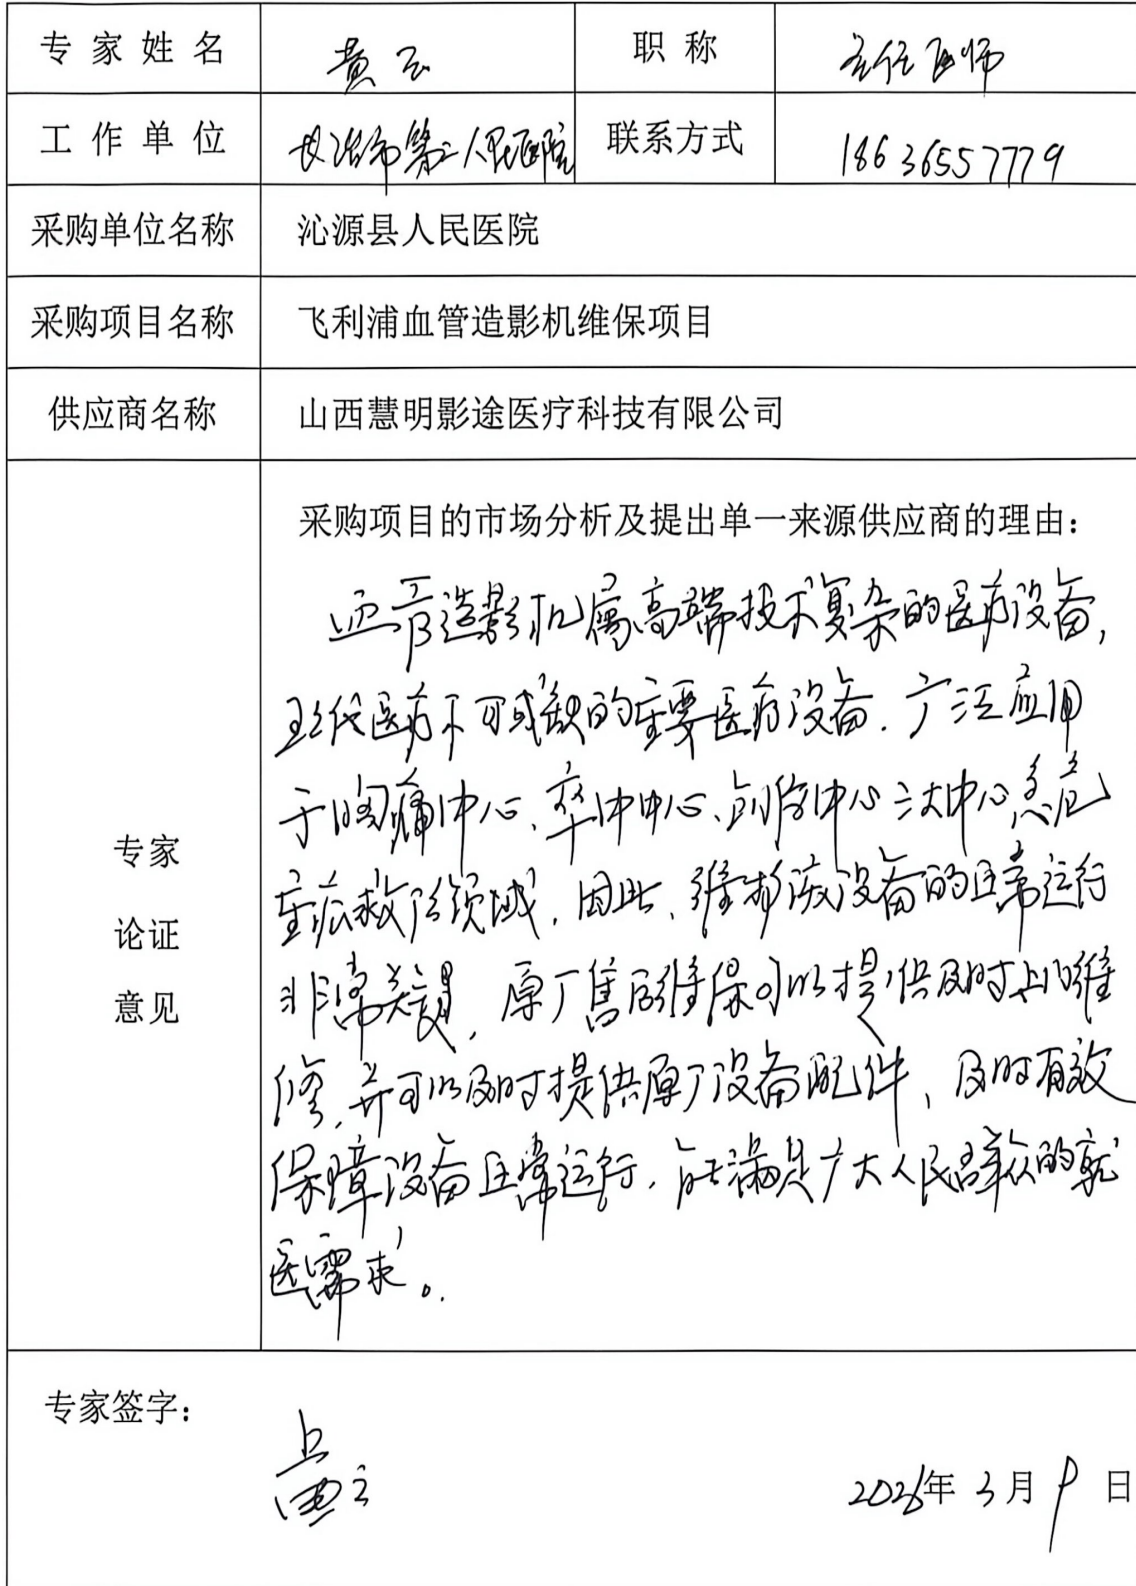 专家姓名 黄云 职称 主任医师
工作单位 长治市第二人民医院 联系方式 18636557779
采购单位名称 沁源县人民医院
采购项目名称 飞利浦血管造影机维保项目
供应商名称 山西慧明影途医疗科技有限公司
专家
论证
意见
采购项目的市场分析及提出单一来源供应商的理由：
血管造影机属高端技术复杂的医疗设备，
现代医疗不可或缺的重要医疗设备．广泛应用
于胸痛中心、卒中中心、创伤中心三大中心急危
重症救治领域．因此、维护该设备的正常运行
非常关键，原厂售后维保可以提供及时上门维
修，并可以及时提供原厂设备配件，及时有效
保障设备正常运行．能满足广大人民群众的就
医需求。
专家签字： 黄云
2026年3月9日